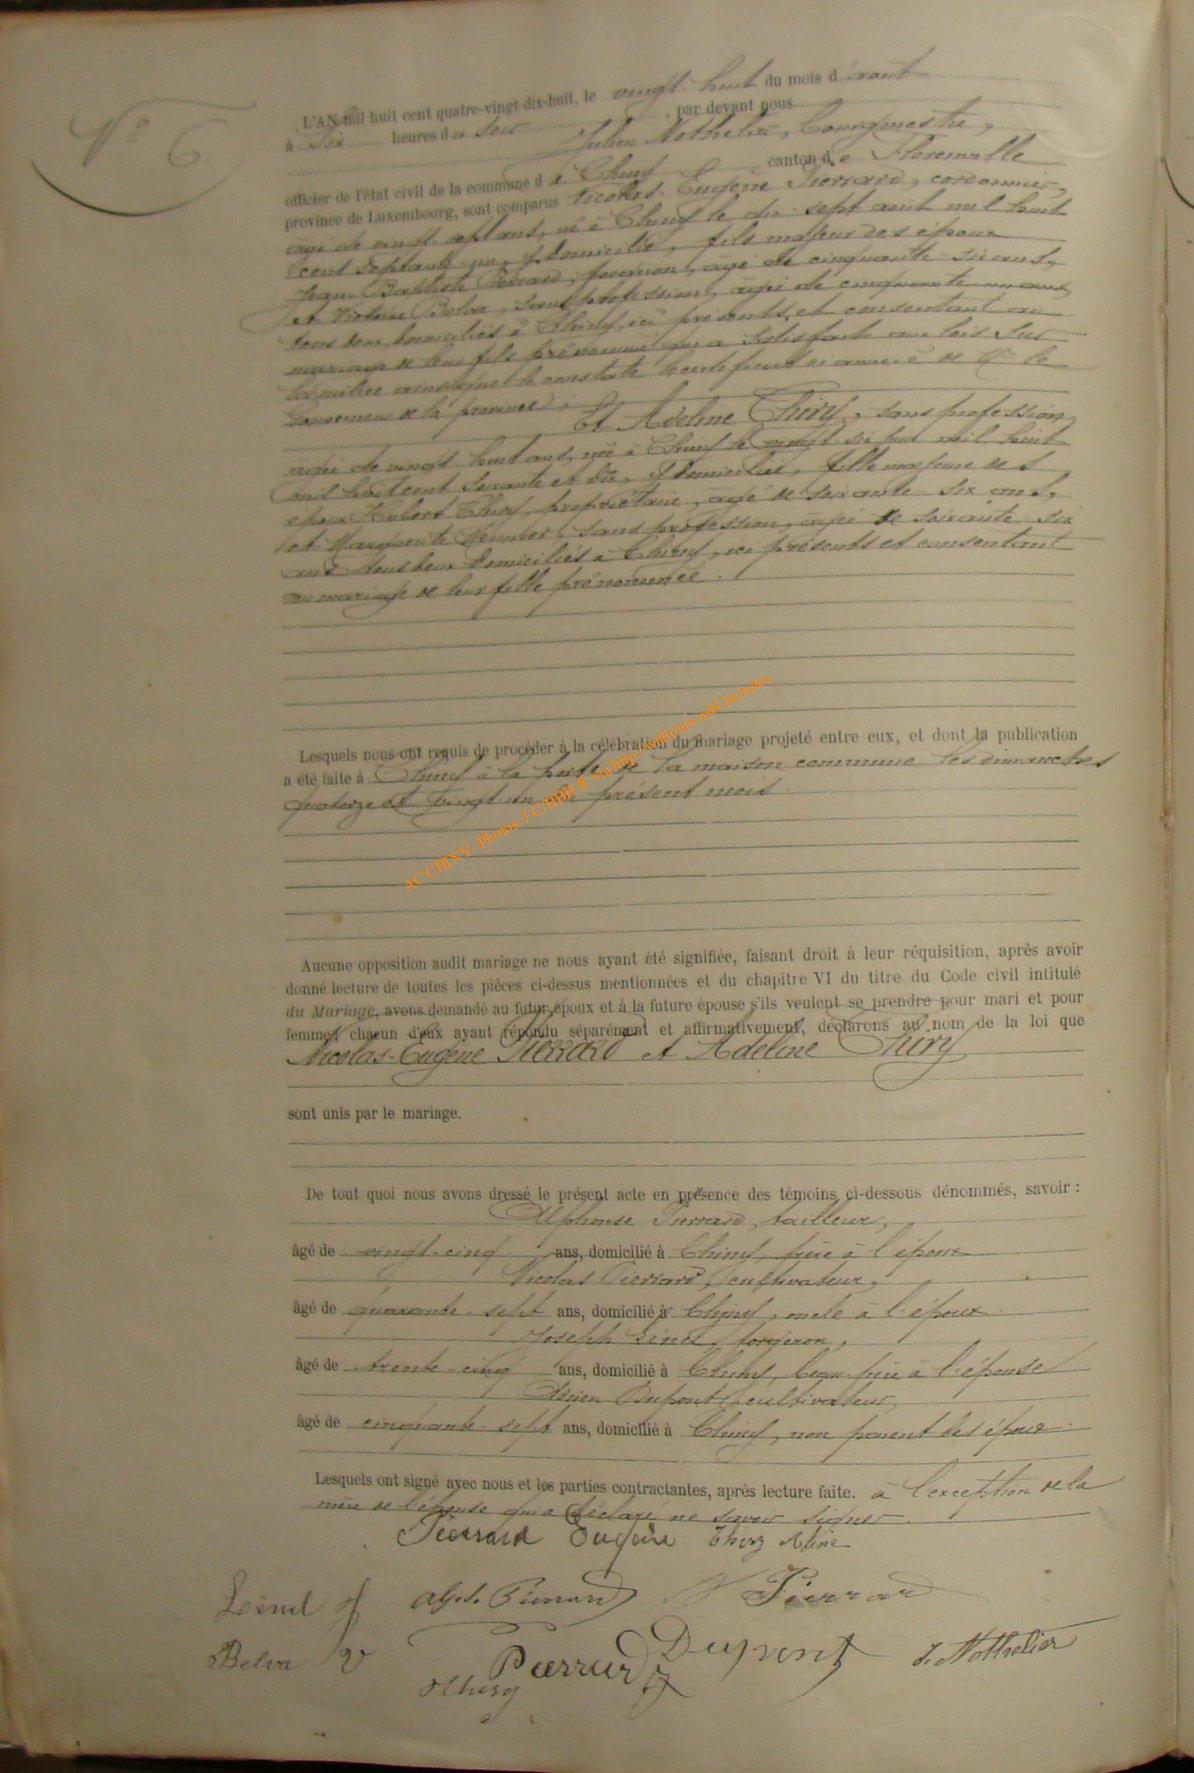 N° 6
L'AN mil huit cent quatre-vingt-dix-huit, le vingt huit du mois d'août
à six heures du soir par devant nous
Julien Nothelier, Bourgmestre,
officier de l'état civil de la commune de Chiny canton de Florenville
province de Luxembourg, sont comparus Nicolas Eugène Pierrard, cordonnier,
âgé de vingt sept ans, né à Chiny le dix sept août mil huit
cent septante un, y domicilié, fils majeur des époux
Jean Baptiste Pierrard, forgeron, âgé de cinquante six ans,
et Victoire Belva, sans profession, âgée de cinquante un ans
tous deux domiciliés à Chiny, ici présents et consentant au
mariage de leur fils prénommé qui a satisfait aux lois sur
la milice ainsi que le constate le certificat ci annexé de Mr le
Gouverneur de la province ;
Et Adeline Thiry, sans profession,
âgée de vingt huit ans, née à Chiny le vingt six juin mil huit
mil huit cent soixante et dix, y domiciliée, fille majeure des
époux Hubert Thiry, propriétaire, âgé de soixante six ans,
et Marguerite sans profession, âgée de soixante six
ans tous deux domiciliés à Chiny, ici présents et consentant
au mariage de leur fille prénommée.
Lesquels nous ont requis de procéder à la célébration du mariage projeté entre eux, et dont la publication
a été faite à Chiny à la porte de la maison commune les dimanches
quatorze et vingt un du présent mois
AC CHINY - Photos J.C.
Aucune opposition audit mariage ne nous ayant été signifiée, faisant droit à leur réquisition, après avoir
donné lecture de toutes les pièces ci-dessus mentionnées et du chapitre VI du titre du Code civil intitulé
du Mariage, avons demandé au futur époux et à la future épouse s'ils veulent se prendre pour mari et pour
femme, chacun d'eux ayant répondu séparément et affirmativement, déclarons au nom de la loi que
Nicolas-Eugène Pierrard et Adeline Thiry
sont unis par le mariage.
De tout quoi nous avons dressé le présent acte en présence des témoins ci-dessous dénommés, savoir :
Alphonse Pierrard, tailleur,
âgé de vingt-cinq ans, domicilié à Chiny, frère à l'époux
Nicolas Pierrard, cultivateur,
âgé de quarante sept ans, domicilié à Chiny, oncle à l'époux
Joseph forgeron,
âgé de trente cinq ans, domicilié à Chiny, beau-frère à l'épouse
Dupont, cultivateur,
âgé de cinquante sept ans, domicilié à Chiny, non parent des époux.
Lesquels ont signé avec nous et les parties contractantes, après lecture faite. à l'exception de la
mère de l'épouse qui a déclaré ne savoir signer.
Pierrard Eugène Thiry Aline
Alph. Pierrard N Pierrard
Belva V Pierrard Dupont J. Nothelier
H Thiry